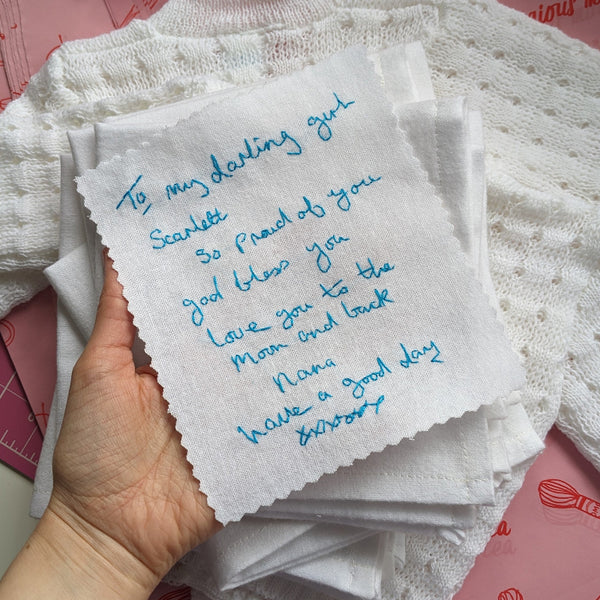 To my darling girl
Scarlett
So proud of you
god bless you
Love you to the
moon and back
Nana
have a good day
xxxxxx